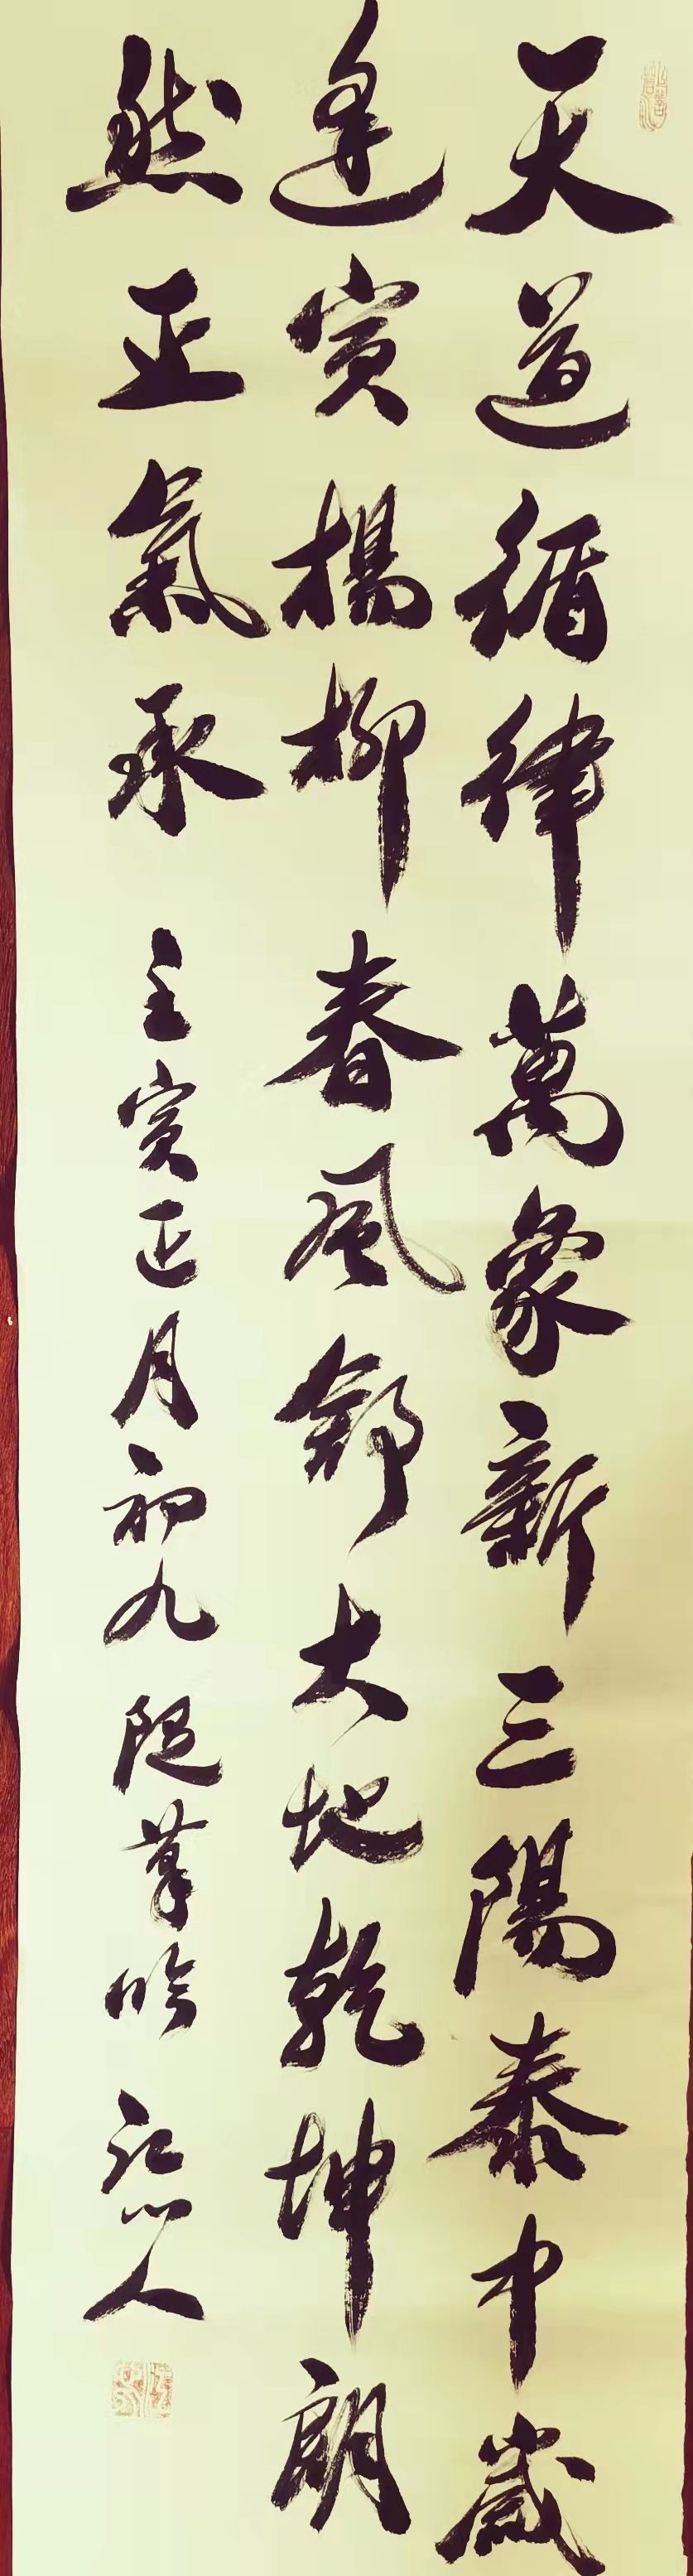 天道循律萬象新三陽泰中歲
逢寅楊柳春風舒大地乾坤朗
然正氣承
壬寅正月初九隨筆吟